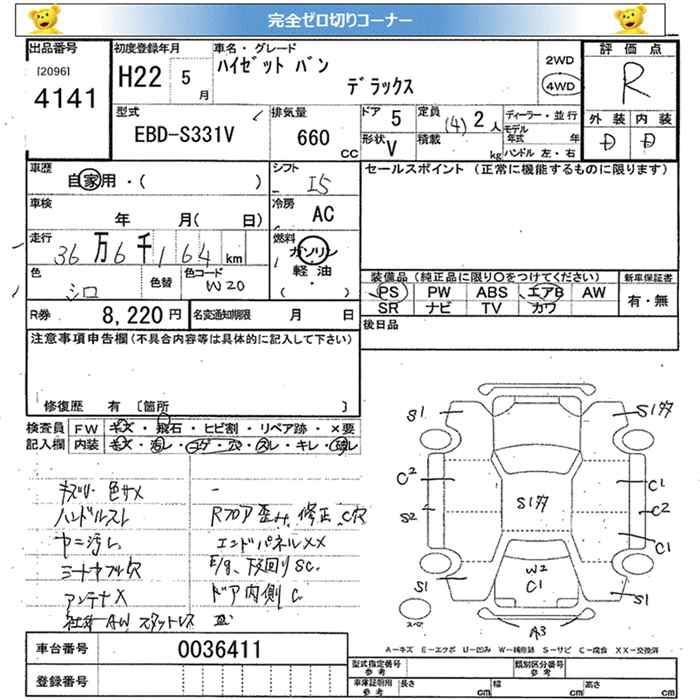 完全ゼロ切りコーナー
出品番号 [2096] 4141
初度登録年月 H22 5月
車名・グレード ハイゼット バン デラックス
2WD 4WD
評価点 R
外装 内装
D D
型式 EBD-S331V
排気量 660 CC
ドア 5
定員 (4) 2人
形状 V
積載 kg
ディーラー・並行
モデル年式 年
ハンドル 左・右
車歴 自家用・( )
シフト I5
セールスポイント (正常に機能するものに限ります)
車検 年 月( 日)
冷房 AC
走行 36万6千164 km
燃料 ガソリン・軽油・( )
色 シロ
色替
色コード W20
装備品 (純正品に限り○をつけてください)
PS PW ABS エアB AW
SR ナビ TV カワ
新車保証書 有・無
R券 8,220円
名変通知期限 月 日
後日品
注意事項申告欄(不具合内容等は具体的に記入して下さい)
修復歴 有 [箇所 ]
検査員記入欄
FW キズ・飛石・ヒビ割・リペア跡・×要
内装 キズ・汚レ・コゲ・穴・スレ・キレ・破レ
キズリ 色サメ
ハンドルスレ
ヤニ汚レ
シートヤブレ穴
アンテナX
社外AW スタットレス
Rフロア歪み、修正、C穴
エンドパネルXX
E/g、下廻りSC
ドア内側C
S1 S1
C2 S2 S1
S1
C1 C2 C1 S1
W2 C1
A3
A－キズ E－エクボ U－凹み W－補修跡 S－サビ C－腐食 XX－交換済
車台番号 0036411
登録番号
型式指定番号 参考
類別区分番号 参考
車庫証明用 参考
長さ cm 幅 cm 高さ cm